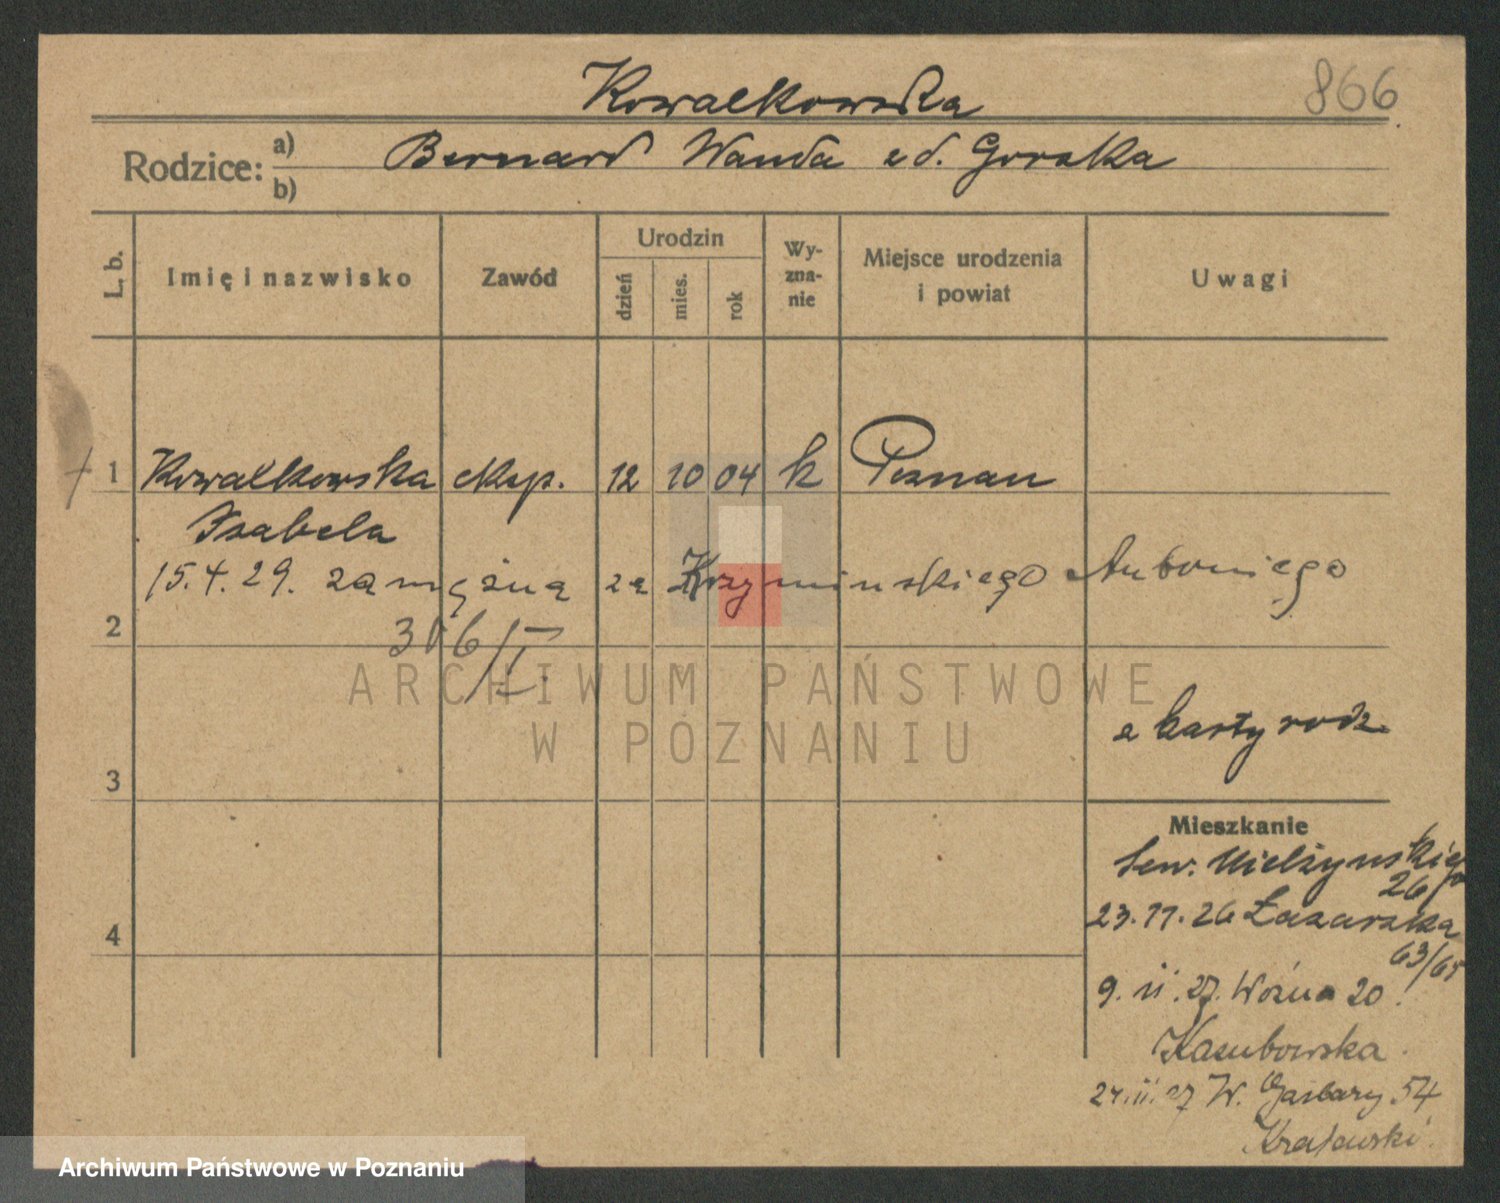 866
Kowalkowska
Rodzice: a) Bernard Wanda z d. Gorska
b)
L. b.
Imię i nazwisko
Zawód
Urodzin
dzień
mies.
rok
Wy-
zna-
nie
Miejsce urodzenia
i powiat
Uwagi
1 Kowalkowska eksp. 12 10 04 k Poznan
Izabela
15. 4. 29. zamężna za Krzyminskiego Antoniego
2
306/I.
ARCHIWUM PAŃSTWOWE
W POZNANIU
z karty rodz.
3
Mieszkanie
Sew. Mielżynskiego
26
23. 11. 26 Łazarska
63/65
4
9. II. 27. Woźna 20.
Kasubowska
24. II. 27 W. Garbary 54
Krajewski
Archiwum Państwowe w Poznaniu